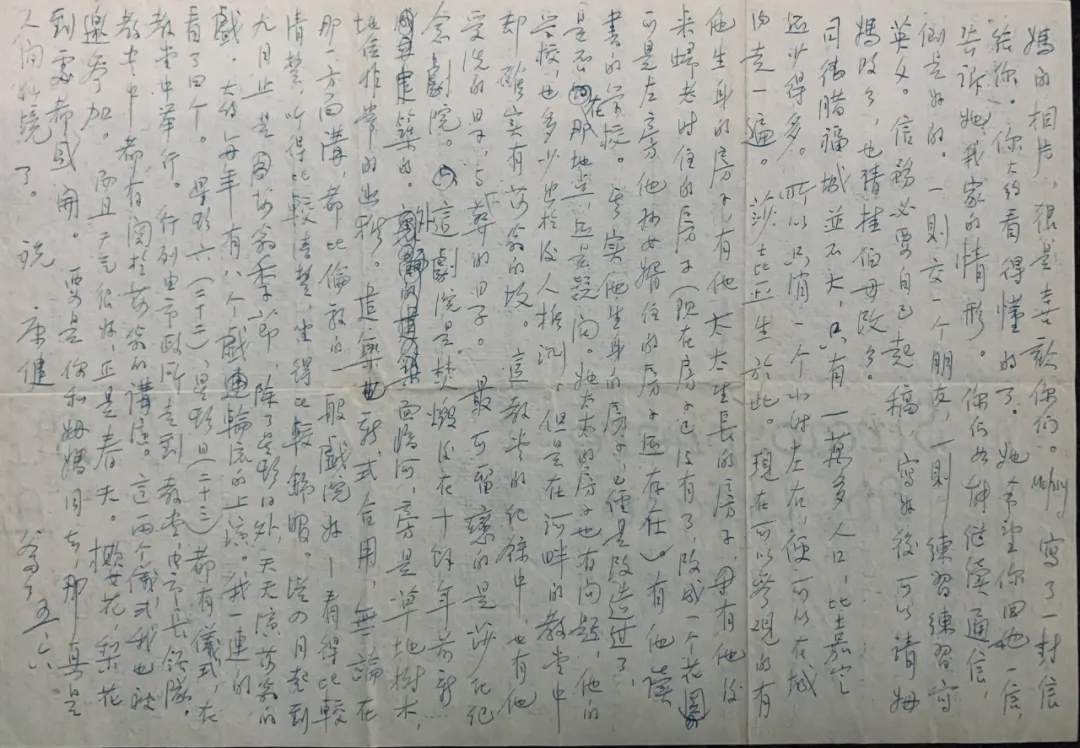 媽的相片，很是喜歡你們。Mohly寫了一封信
給你。你大約看得懂的了。她希望你回她一信，
告訴她我家的情形。你們如能繼續通信，
倒是好的。一則交一個朋友，一則練習練習寫
英文。信務必要自己起稿，寫好後可以請姆
媽改改，也請挂伯母改改。
司德腊福城並不大，只有一萬多人口，比士嘉定
還少得多。所以只消一个小时左右，便可以在城
内走一遍。莎士比亚生於此。現在可以參观的有
他生身的房子，有他太太生長的房子，再有他後
来歸老时住的房子（現在房子已没有了，改成一个花園
可是左旁他孙女婿住的房子還存在）。有他读
書的学校。其实他生身的房子，已經是改造过了，
是否在那地点，亦是疑问。她太太的房子也有问题，他的
学校，也多少出於後人推测，但是在河畔的教堂中
却確实有莎翁的坟。這教堂的纪錄中，也有他
受洗的日子，与葬的日子。最可留戀的是莎氏纪
念劇院。這劇院是焚燬後在十餘年前新
建築的。面临河，旁是草地樹木，
地位非常的幽雅。建築也新式合用，無論在
那一方面講，都比倫敦的一般戲院好－看得比較
清楚，听得比較清楚，坐得比較舒服。從四月起到
九月止是莎翁季節，除了星期日外，天天演莎翁的
戲，大約每年有八个戲連輪流的上演。我一連的
看了四个。星期六（二十二）星期日（二十三）都有儀式，在
教堂中举行。行列由市政所走到教堂，
教堂中都有関於莎翁的講演。這两个儀式我也被
邀参加。而且天气很好，正是春天。櫻花，梨花
到處都盛開。要是你和姆媽同去，那真是
人间仙境了。祝
康健